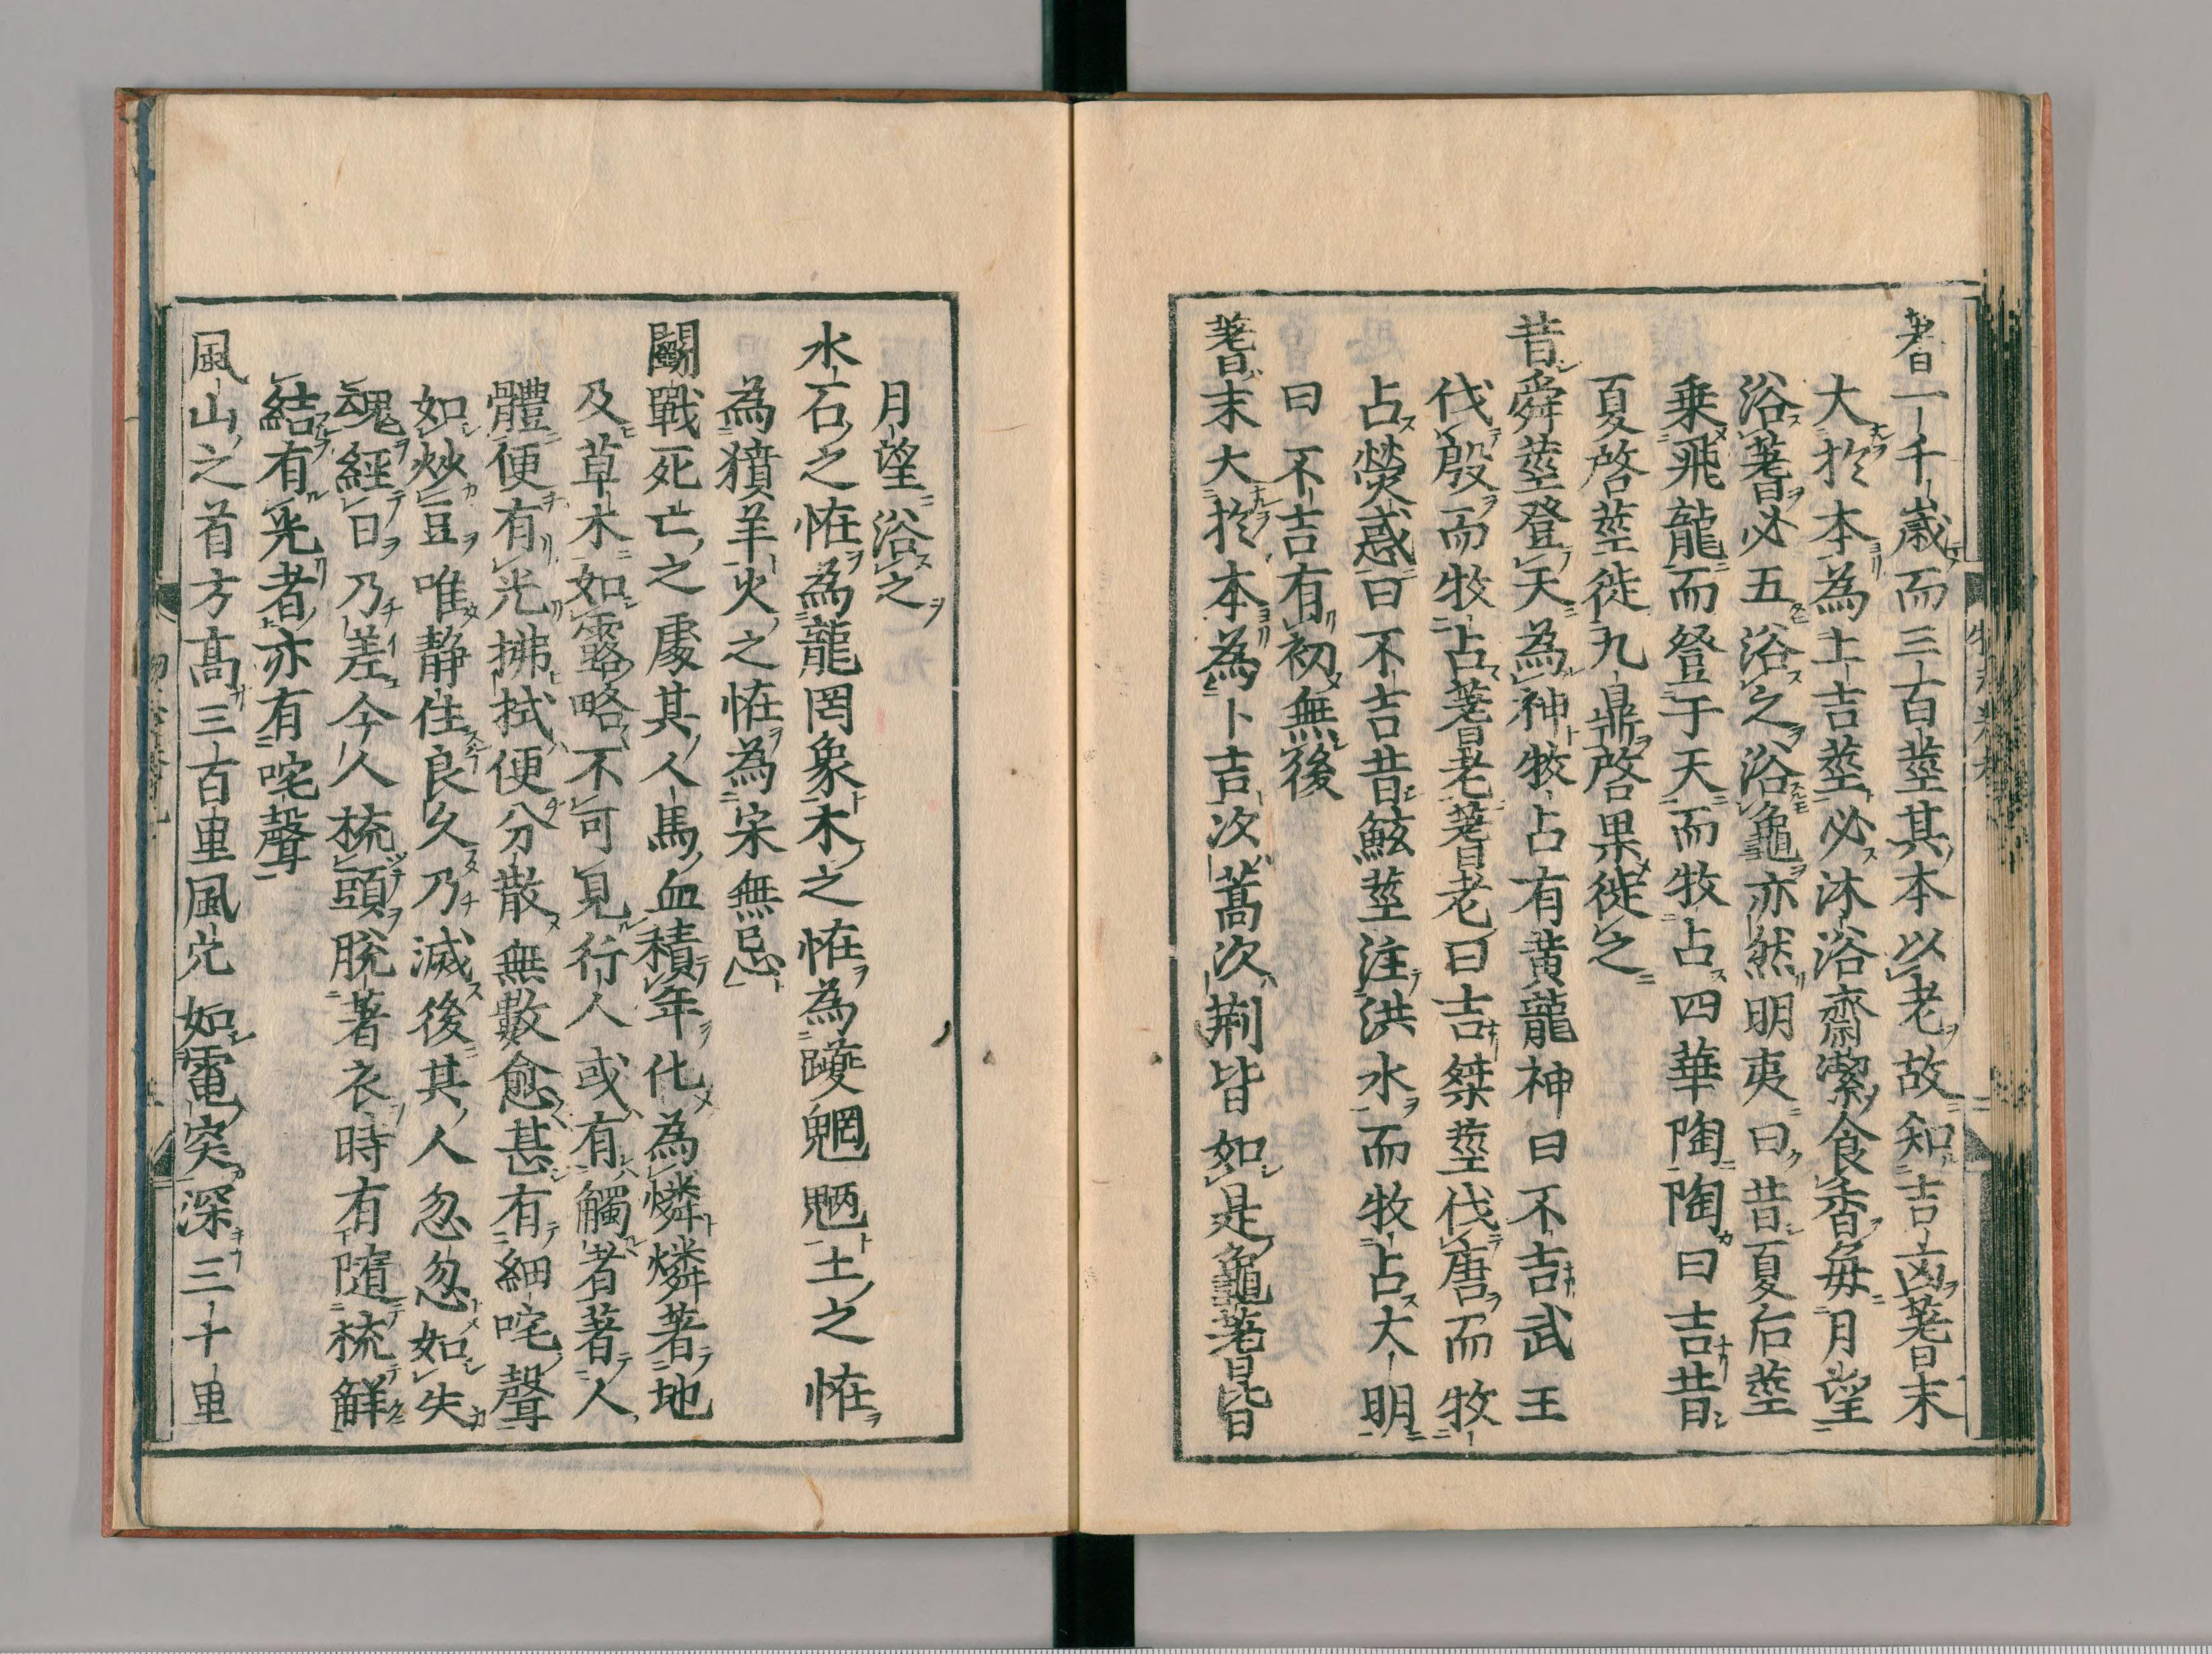 蓍一千歳而三百莖其本以老故知吉凶蓍末
大於本為上吉莖必沐浴齋潔食香毎月望
浴蓍必五浴之浴龜亦然明夷曰昔夏后莖
乗飛龍而登于天而牧占四華陶陶曰吉昔
夏啓莖徙九鼎啓果徙之
昔舜莖登天為神牧占有黄龍神曰不吉武王
伐殷而牧占蓍老蓍老曰吉桀莖伐唐而牧
占熒惑曰不吉昔鮌莖注洪水而牧占大明
曰不吉有初無後
蓍末大於本為卜吉次蒿次荆皆如是龜蓍皆
月望浴之
水石之恠為龍罔象木之恠為躨魍魎土之恠
為獖羊火之恠為宋無忌
鬭戰死亡之處其人馬血積年化為燐燐著地
及草木如露略不可見行人或有觸者著人
體便有光拂拭便分散無數愈甚有細咤聲
如炒豆唯靜住良久乃滅後其人忽忽如失
魂經日乃差今人梳頭脱著衣時有隨梳解
結有光者亦有咤聲
風山之首方高三百里風穴如電突深三十里